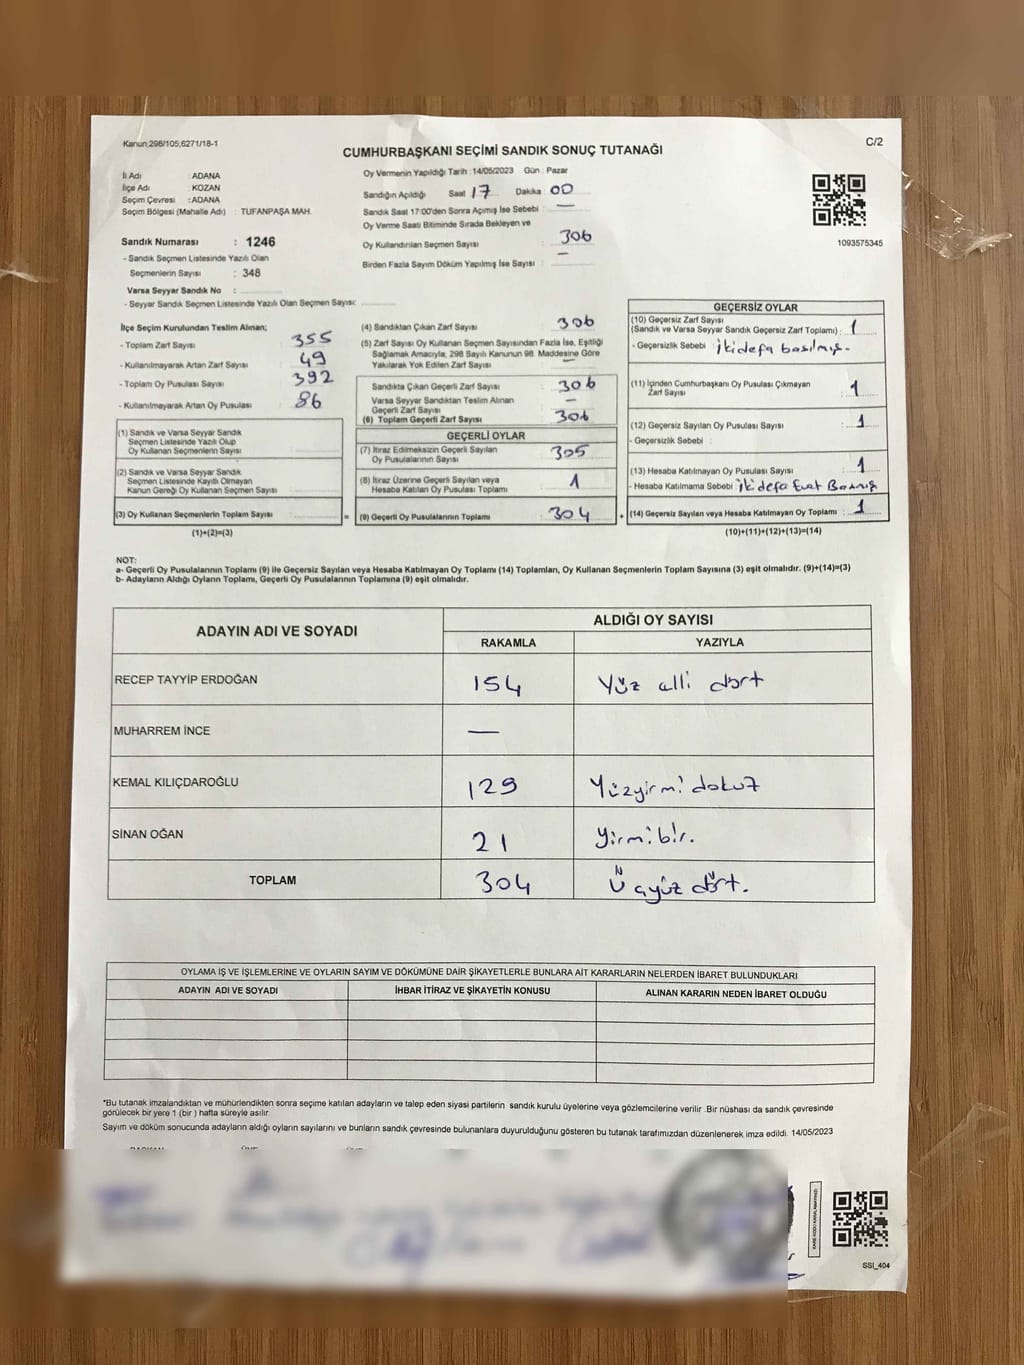 Kanun:298/105,6271/18-1
C/2
CUMHURBAŞKANI SEÇİMİ SANDIK SONUÇ TUTANAĞI
İl Adı : ADANA
İlçe Adı : KOZAN
Seçim Çevresi : ADANA
Seçim Bölgesi (Mahalle Adı) : TUFANPAŞA MAH.
Sandık Numarası : 1246
- Sandık Seçmen Listesinde Yazılı Olan
Seçmenlerin Sayısı : 348
Varsa Seyyar Sandık No :
- Seyyar Sandık Seçmen Listesinde Yazılı Olan Seçmen Sayısı:
Oy Vermenin Yapıldığı Tarih : 14/05/2023 Gün : Pazar
Sandığın Açıldığı Saat 17 Dakika : 00
Sandık Saat 17:00'den Sonra Açmış İse Sebebi : —
Oy Verme Saati Bitiminde Sırada Bekleyen ve
Oy Kullandırılan Seçmen Sayısı : 306
Birden Fazla Sayım Döküm Yapılmış İse Sayısı : —
1093575345
İlçe Seçim Kurulundan Teslim Alınan;
- Toplam Zarf Sayısı : 355
- Kullanılmayarak Artan Zarf Sayısı : 49
- Toplam Oy Pusulası Sayısı : 392
- Kullanılmayarak Artan Oy Pusulası : 86
(1) Sandık ve Varsa Seyyar Sandık
Seçmen Listesinde Yazılı Olup
Oy Kullanan Seçmenlerin Sayısı :
(2) Sandık ve Varsa Seyyar Sandık
Seçmen Listesinde Kayıtlı Olmayan
Kanun Gereği Oy Kullanan Seçmen Sayısı :
(3) Oy Kullanan Seçmenlerin Toplam Sayısı : =
(1)+(2)=(3)
(4) Sandıktan Çıkan Zarf Sayısı : 306
(5) Zarf Sayısı Oy Kullanan Seçmen Sayısından Fazla İse, Eşitliği
Sağlamak Amacıyla; 298 Sayılı Kanunun 98. Maddesine Göre
Yakılarak Yok Edilen Zarf Sayısı : —
Sandıkta Çıkan Geçerli Zarf Sayısı : 306
Varsa Seyyar Sandıktan Teslim Alınan
Geçerli Zarf Sayısı : —
(6) Toplam Geçerli Zarf Sayısı : 306
GEÇERLİ OYLAR
(7) İtiraz Edilmeksizin Geçerli Sayılan
Oy Pusulalarının Sayısı : 305
(8) İtiraz Üzerine Geçerli Sayılan veya
Hesaba Katılan Oy Pusulası Toplamı : 1
(9) Geçerli Oy Pusulalarının Toplamı : 304 +
GEÇERSİZ OYLAR
(10) Geçersiz Zarf Sayısı
(Sandık ve Varsa Seyyar Sandık Geçersiz Zarf Toplamı) : 1
- Geçersizlik Sebebi : iki defa basılmış.
(11) İçinden Cumhurbaşkanı Oy Pusulası Çıkmayan
Zarf Sayısı : 1
(12) Geçersiz Sayılan Oy Pusulası Sayısı : 1
- Geçersizlik Sebebi :
(13) Hesaba Katılmayan Oy Pusulası Sayısı : 1
- Hesaba Katılmama Sebebi : iki defa Evet Basmış
(14) Geçersiz Sayılan veya Hesaba Katılmayan Oy Toplamı : 1
(10)+(11)+(12)+(13)=(14)
NOT:
a- Geçerli Oy Pusulalarının Toplamı (9) ile Geçersiz Sayılan veya Hesaba Katılmayan Oy Toplamı (14) Toplamları, Oy Kullanan Seçmenlerin Toplam Sayısına (3) eşit olmalıdır. (9)+(14)=(3)
b- Adayların Aldığı Oyların Toplamı, Geçerli Oy Pusulalarının Toplamına (9) eşit olmalıdır.
ADAYIN ADI VE SOYADI
ALDIĞI OY SAYISI
RAKAMLA YAZIYLA
RECEP TAYYİP ERDOĞAN 154 Yüz alli dört
MUHARREM İNCE —
KEMAL KILIÇDAROĞLU 129 Yüzyirmi dokuz
SİNAN OĞAN 21 Yirmi bir.
TOPLAM 304 Üçyüz dört.
OYLAMA İŞ VE İŞLEMLERİNE VE OYLARIN SAYIM VE DÖKÜMÜNE DAİR ŞİKAYETLERLE BUNLARA AİT KARARLARIN NELERDEN İBARET BULUNDUKLARI
ADAYIN ADI VE SOYADI İHBAR İTİRAZ VE ŞİKAYETİN KONUSU ALINAN KARARIN NEDEN İBARET OLDUĞU
*Bu tutanak imzalandıktan ve mühürlendikten sonra seçime katılan adayların ve talep eden siyasi partilerin sandık kurulu üyelerine veya gözlemcilerine verilir .Bir nüshası da sandık çevresinde
görülecek bir yere 1 (bir ) hafta süreyle asılır.
Sayım ve döküm sonucunda adayların aldığı oyların sayılarını ve bunların sandık çevresinde bulunanlara duyurulduğunu gösteren bu tutanak tarafımızdan düzenlenerek imza edildi. 14/05/2023
SSI_404